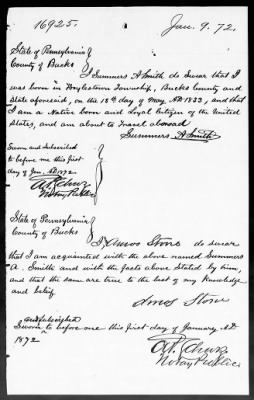 16925.
Jan. 9. 72.
State of Pennsylvania
County of Bucks
I Summers A Smith do swear that I
was born in Doylestown Township, Bucks County and
State aforesaid, on the 18th day of May, AD 1833, and that
I am a Native born and Loyal Citizen of the United
States, and am about to travel abroad
Summers A Smith
Sworn and Subscribed
to before me this first
day of Jan. AD 1872
Notary Public
State of Pennsylvania
County of Bucks
I, Amos Stone do swear
that I am acquainted with the above named Summers
A. Smith and with the facts above Stated by him,
and that the same are true to the best of my Knowledge
and belief
Amos Stone
and subscribed
Sworn to before me this first day of January AD
1872
Notary Public